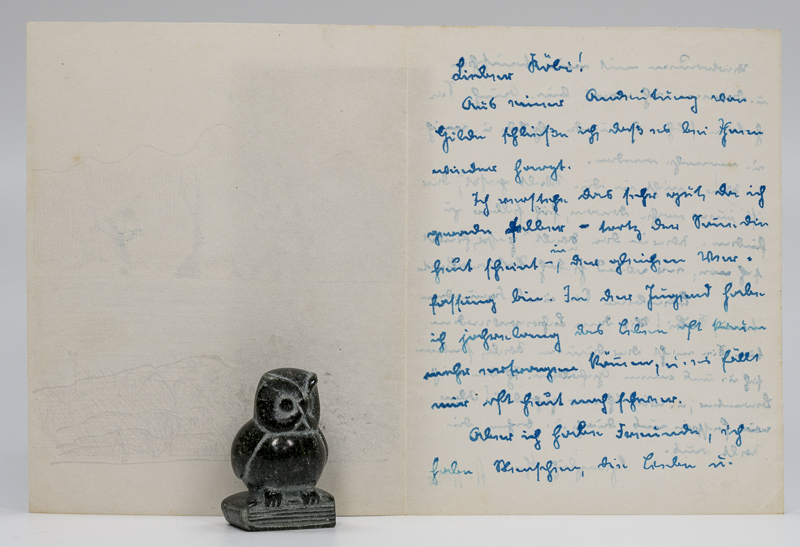 Lieber Köbi!
Aus einer Andeutung von
Hilde schließe ich, daß es bei Ihnen
wieder harzt.
Ich verstehe das sehr gut, da ich
gerade selber – trotz der Sonne die
heut scheint –, in der gleichen Ver-
fassung bin. In der Jugend habe
ich jahrelang das Leben oft kaum
mehr ertragen können, u. es fällt
mir oft heut noch schwer.
Aber ich habe Freunde, ich
habe Menschen, die leiden u.